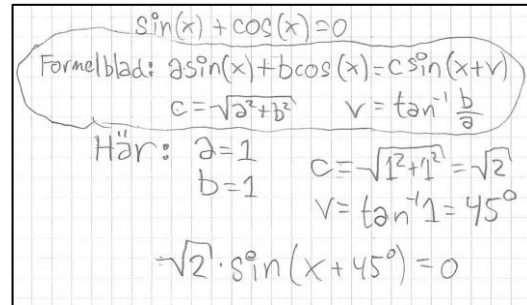 sin(x) + cos(x) = 0
Formelblad: asin(x) + bcos(x) = csin(x+v)
c = √(a²+b²) v = tan⁻¹ b/a
Här: a = 1
b = 1
c = √(1²+1²) = √2
v = tan⁻¹1 = 45°
√2 · sin(x + 45°) = 0